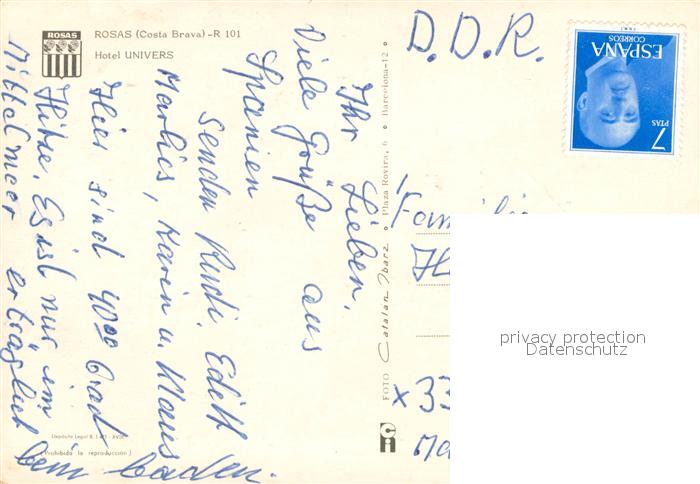 ROSAS
ROSAS (Costa Brava) - R 101
Hotel UNIVERS
Ihr Lieben,
Viele Grüße aus
Spanien
senden Rudi, Edith
Marlies, Karin u. Klaus
Hier sind 40°° Grad
Hitze. Es ist nur im
Mittelmeer erträglich
beim baden.
D.D.R.
ESPAÑA
CORREOS
7
PTAS
Familie
x 33
FOTO Catalan Ibarz • Plaza Rovira, 6 • Barcelona-12
(Prohibida la reproducción)
ci
privacy protection
Datenschutz